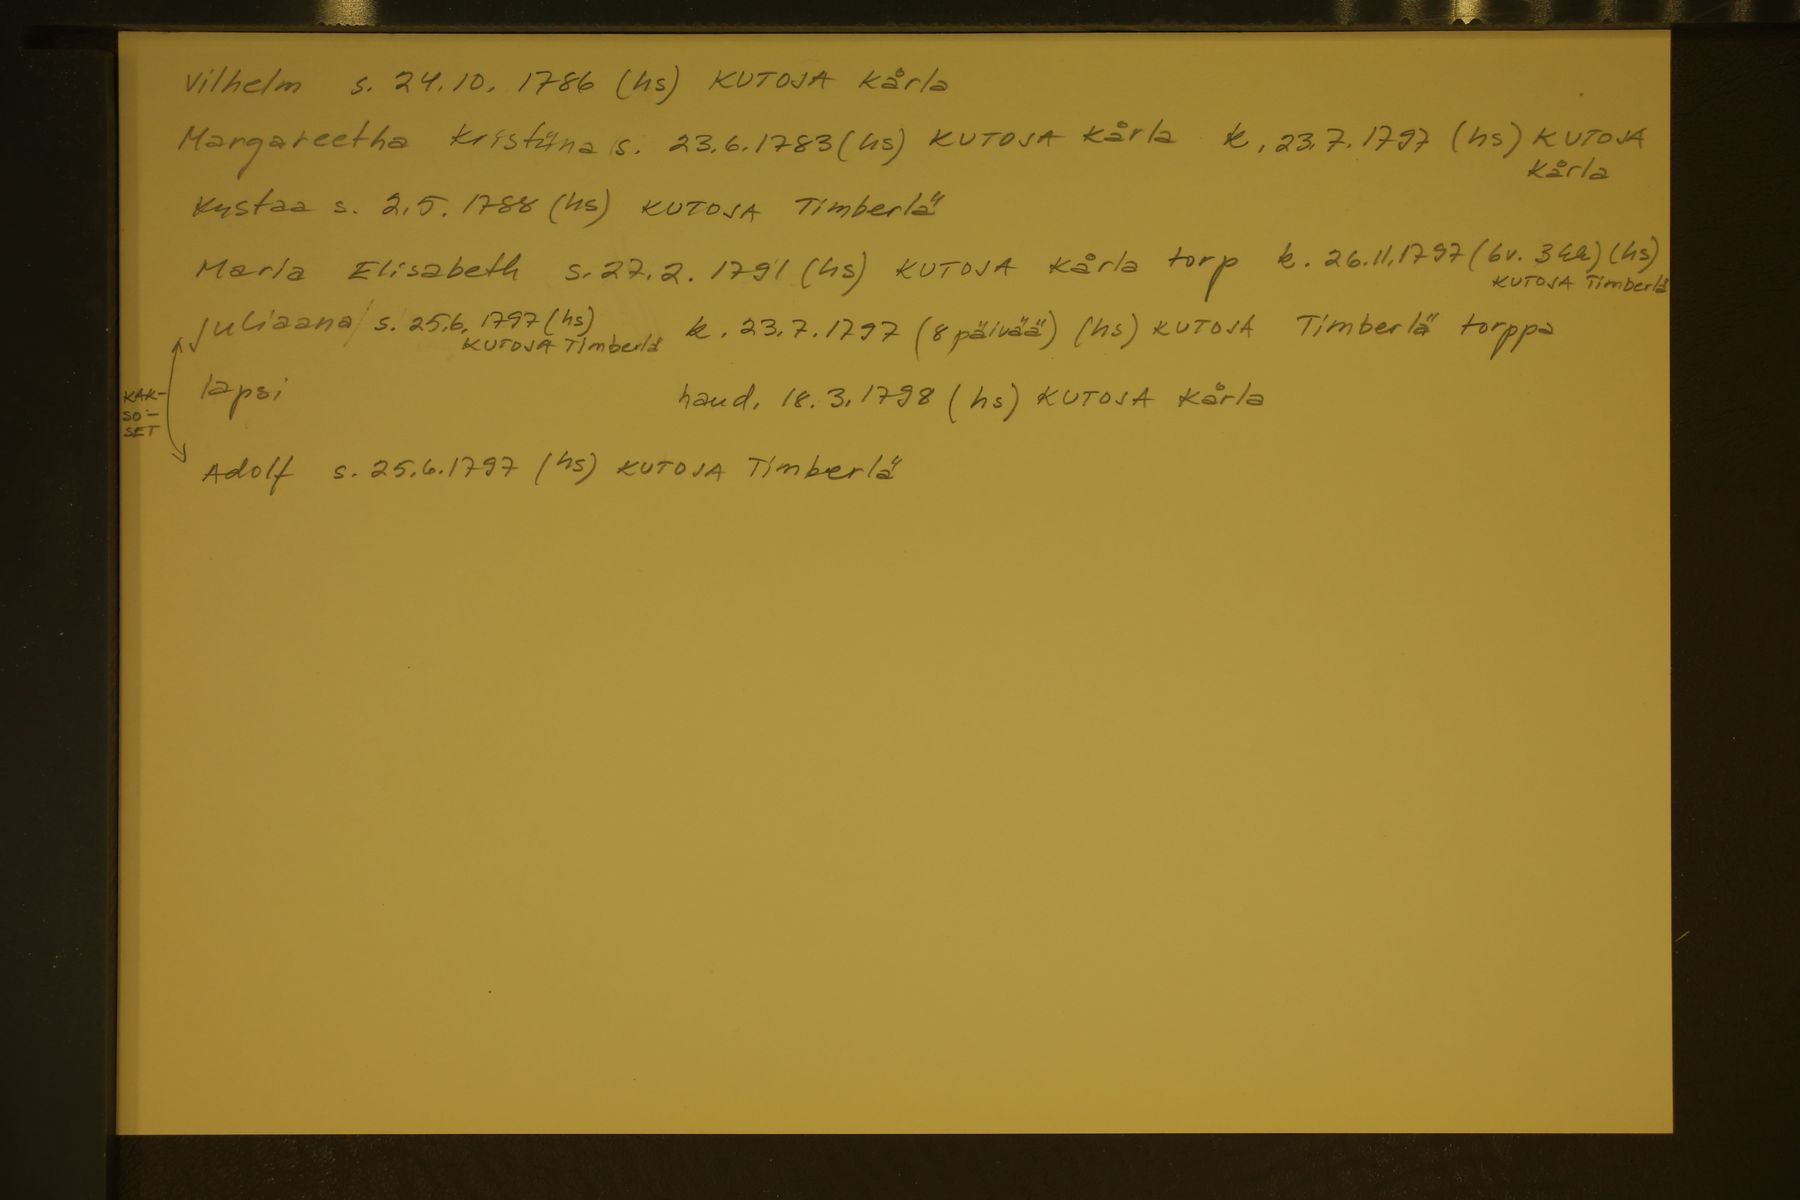 Vilhelm s. 24.10. 1786 (hs) KUTOJA Kårla
Margareetha Kristiina s. 23.6.1783 (hs) KUTOJA Kårla k. 23.7.1797 (hs) KUTOJA
Kårla
Kustaa s. 2.5. 1788 (hs) KUTOJA Timberlä
Maria Elisabeth s. 27.2. 1791 (hs) KUTOJA Kårla torp k. 26.11.1797 (6v. 3kk) (hs)
KUTOJA Timberlä
Juliaana s. 25.6. 1797 (hs) k. 23.7.1797 (8 päivää) (hs) KUTOJA Timberlä torppa
KUTOJA Timberlä
lapsi haud. 18.3.1798 (hs) KUTOJA Kårla
KAK-
SOI-
SET
Adolf s. 25.6.1797 (hs) KUTOJA Timberlä